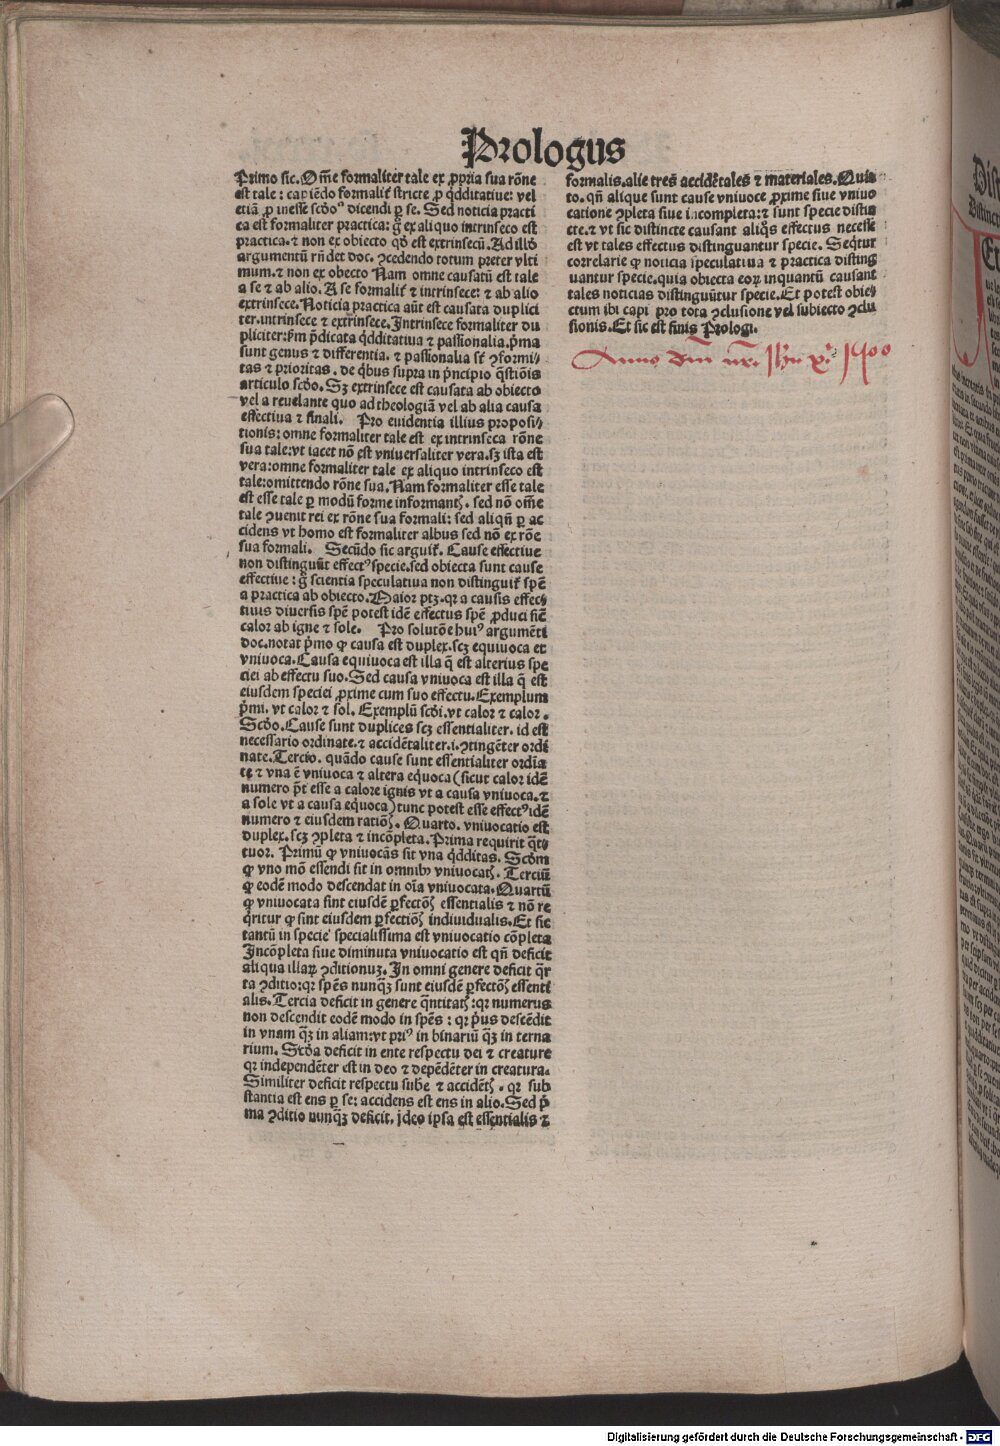 Prologus
Primo sic. Om̄e formaliter tale ex ꝓpria sua rōne
est tale: capiēdo formalit̄ stricte ꝓ q̇dditatiue: vel
etiā ꝓ inesse scd̄o dicendi ꝑ se. Sed noticia practi
ca est formaliter practica: g̊ ex aliquo intrinseco est
practica. ⁊ non ex obiecto qd̄ est extrinsecū. Ad illd̄
argumentū rn̄det doc. ꝯcedendo totum preter vlti
mum. ⁊ non ex obecto Nam omne causatū est tale
a se ⁊ ab alio. A se formalit̄ ⁊ intrinsece: ⁊ ab alio
extrinsece. Noticia practica aūt est causata duplici
ter. intrinsece ⁊ extrinsece. Intrinsece formaliter du
pliciter: ẜm p̄dicata q̇dditatiua ⁊ passionalia. p̄ma
sunt genus ⁊ differentia. ⁊ passionalia sc̄ ꝯformi⸗
tas ⁊ prioritas. de q̇bus supra in p̄ncipio q̄stiōis
articulo scd̄o. Sꝫ extrinsece est causata ab obiecto
vel a reuelante quo ad theologiā vel ab alia causa
effectiua ⁊ finali. Pro euidentia illius proposi⸗
tionis: omne formaliter tale est ex intrinseca rōne
sua tale: vt iacet nō est vniuersaliter vera. sꝫ ista est
vera: omne formaliter tale ex aliquo intrinseco est
tale: omittendo rōne sua. Nam formaliter esse tale
est esse tale ꝑ modū forme informantꝭ. sed nō om̄e
tale ꝯuenit rei ex rōne sua formali: sed aliqn̄ ꝑ ac
cidens vt homo est formaliter albus sed nō ex rōe
sua formali. Secūdo sic arguit̄. Cause effectiue
non distinguūt effectꝰ specie. sed obiecta sunt cause
effectiue: g̊ scientia speculatiua non distinguit̄ spē
a practica ab obiecto. Maior ptꝫ. qꝛ a causis effec⸗
tiuis diuersis spē potest idē effectus spē ꝓduci sic̄
calor ab igne ⁊ sole. Pro solutōe huiꝰ argumēti
doc. notat p̄mo ꝙ causa est duplex. scꝫ equiuoca et
vniuoca. Causa equiuoca est illa q̄ est alterius spe
ciei ab effectu suo. Sed causa vniuoca est illa q̄ est
eiusdem speciei ꝓxime cum suo effectu. Exemplum
p̄mi. vt calor ⁊ sol. Exemplū scd̄i. vt calor ⁊ calor.
Scd̄o. Cause sunt duplices scꝫ essentialiter. id est
necessario ordinate. ⁊ accidētaliter. i. ꝯtingēter ordi
nate. Tercio. quādo cause sunt essentialiter ordīa
te ⁊ vna ē vniuoca ⁊ altera eq̇uoca (sicut calor idē
numero pōt esse a calore ignis vt a causa vniuoca. ⁊
a sole vt a causa eq̇uoca) tunc potest esse effectꝰ idē
numero ⁊ eiusdem rationꝭ. Quarto. vniuocatio est
duplex. scꝫ ꝯpleta ⁊ incōpleta. Prima requirit q̄t⸗
tuor. Primū ꝙ vniuocās sit vna q̇dditas. Scd̄m
ꝙ vno mō essendi sit in omnibꝰ vniuocatꝭ. Terciū
ꝙ eodē modo descendat in oīa vniuocata. Quartū
ꝙ vniuocata sint eiusdē ꝑfectōꝭ essentialis ⁊ nō re
q̇ritur ꝙ sint eiusdem ꝑfectiōꝭ indiuidualis. Et sic
tantū in specie specialissima est vniuocatio cōpleta
Incōpleta siue diminuta vniuocatio est qn̄ deficit
aliqua illaꝝ ꝯditionuꝫ. In omni genere deficit q̄r
ta ꝯditio: qꝛ spēs nunq̄ꝫ sunt eiusdē ꝑfectōꝭ essenti
alis. Tercia deficit in genere q̄ntitatꝭ: qꝛ numerus
non descendit eodē modo in spēs: qꝛ p̄us descēdit
in vnam q̄ꝫ in aliam: vt priꝰ in binariū q̄ꝫ in terna
rium. Scd̄a deficit in ente respectu dei ⁊ creature
qꝛ independēter est in deo ⁊ depēdēter in creatura.
Similiter deficit respectu sube ⁊ accidētꝭ. qꝛ sub
stantia est ens ꝑ se: accidens est ens in alio. Sed p̄
ma ꝯditio nunq̄ꝫ deficit. ideo ipsa est essentialis ⁊
formalis. alie tres accidētales ⁊ materiales. Quin
to. qn̄ alique sunt cause vniuoce ꝓxime siue vniuo
catione ꝯpleta siue incompleta: ⁊ sunt specie distin
cte. ⁊ vt sic distincte causant aliq̇s effectus necesse
est vt tales effectus distinguantur specie. Seq̇tur
correlarie ꝙ noticia speculatiua ⁊ practica disting
uantur specie. quia obiecta eoꝝ inquantū causant
tales noticias distinguūtur specie. Et potest obie⸗
ctum ibi capi pro tota ꝯclusione vel subiecto ꝯclu
sionis. Et sic est finis Prologi.
Anno dm̄ nr̄i Jhu xp̄i 1500
Digitalisierung gefördert durch die Deutsche Forschungsgemeinschaft - DFG